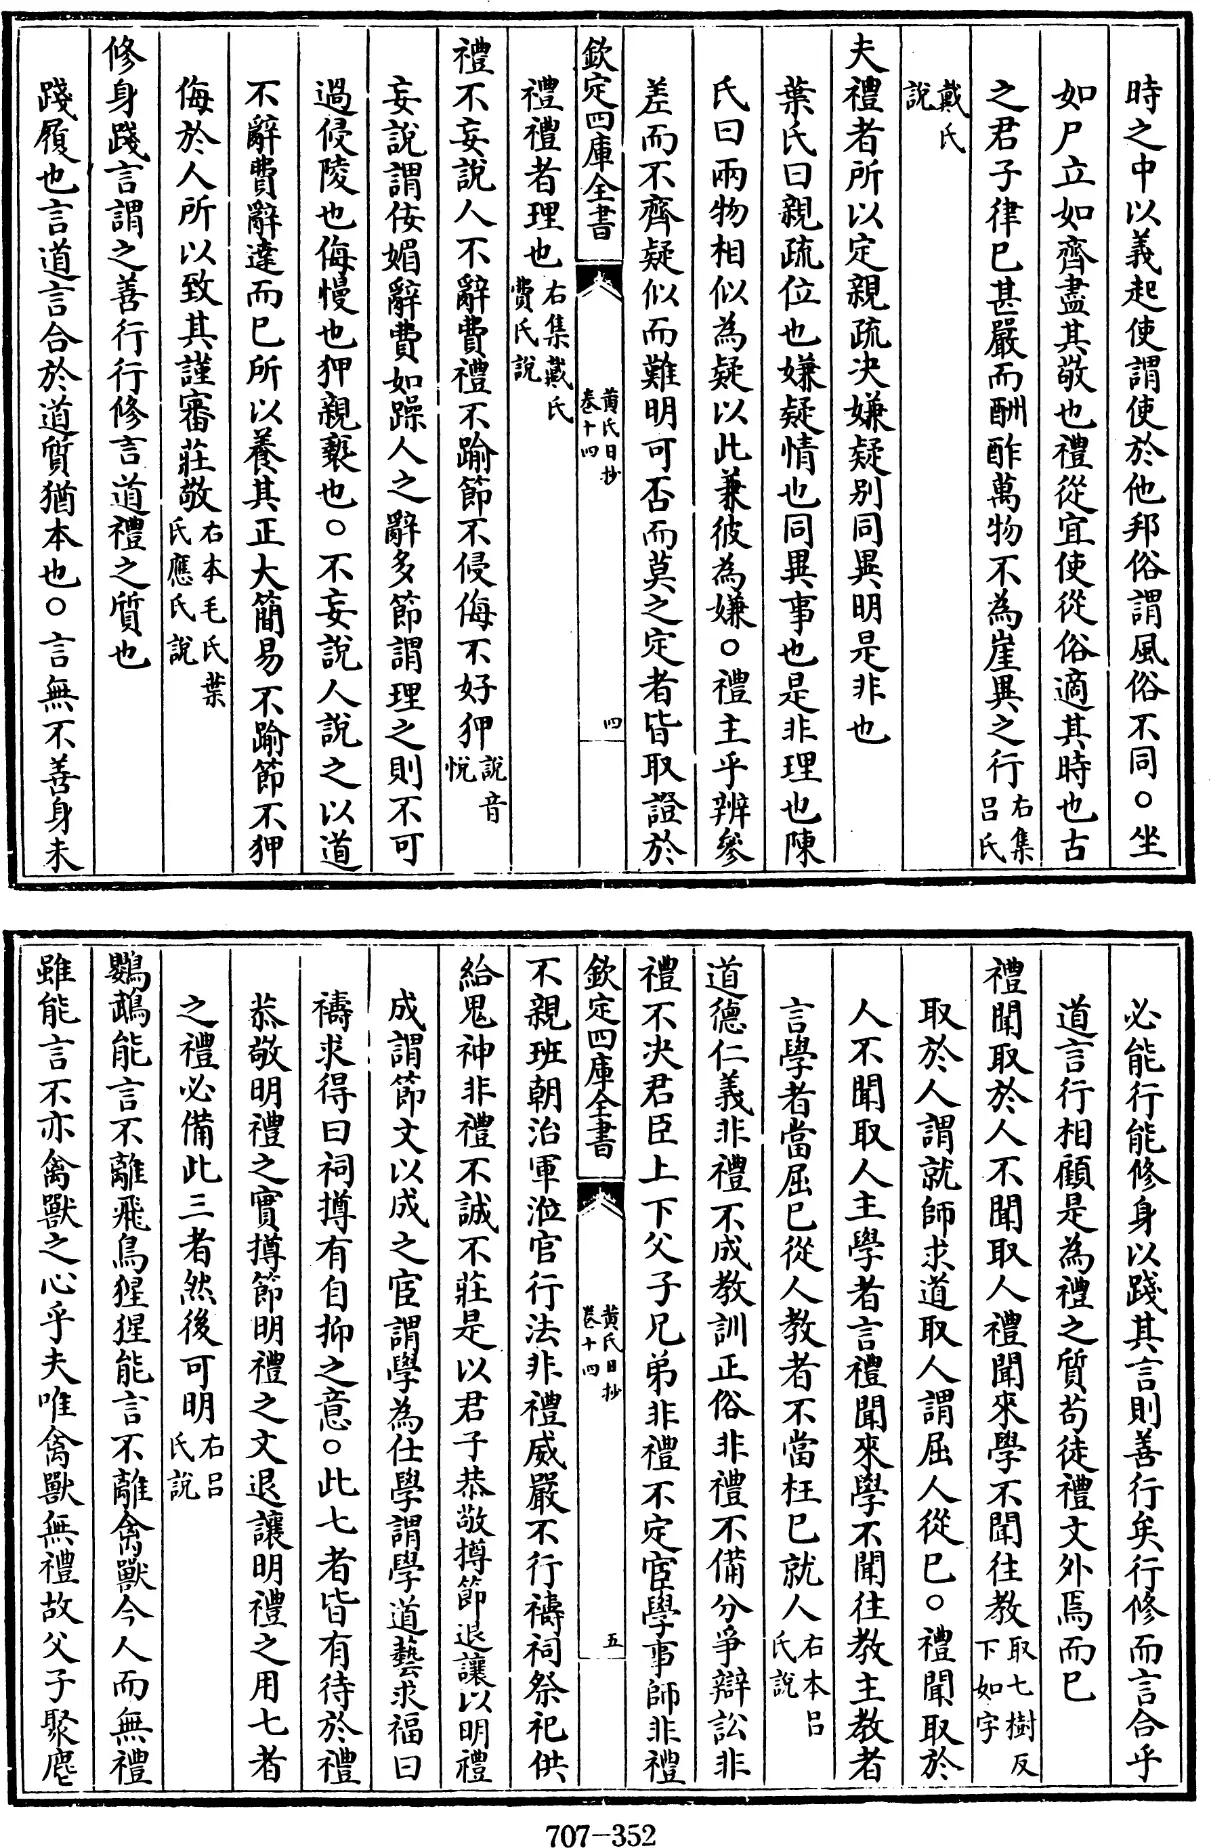 時之中以義起使謂使於他邦俗謂風俗不同○坐
如尸立如齊盡其敬也禮從宜使從俗適其時也古
之君子律已甚嚴而酬酢萬物不為崖異之行右集呂氏
戴氏說
夫禮者所以定親疏決嫌疑别同異明是非也
葉氏曰親疏位也嫌疑情也同異事也是非理也陳
氏曰兩物相似為疑以此兼彼為嫌○禮主乎辨參
差而不齊疑似而難明可否而莫之定者皆取證於
欽定四庫全書
黄氏日抄
卷十四
四
禮禮者理也右集戴氏費氏說
禮不妄說人不辭費禮不踰節不侵侮不好狎說音悅
妄說謂佞媚辭費如躁人之辭多節謂理之則不可
過侵陵也侮慢也狎親褻也○不妄說人說之以道
不辭費辭達而已所以養其正大簡易不踰節不狎
侮於人所以致其謹審莊敬右本毛氏葉氏應氏說
修身踐言謂之善行行修言道禮之質也
踐履也言道言合於道質猶本也○言無不善身未
必能行能修身以踐其言則善行矣行修而言合乎
道言行相顧是為禮之質茍徒禮文外焉而已
禮聞取於人不聞取人禮聞來學不聞往教取七樹反下如字
取於人謂就師求道取人謂屈人從已○禮聞取於
人不聞取人主學者言禮聞來學不聞往教主教者
言學者當屈已從人教者不當枉已就人右本呂氏說
道德仁義非禮不成教訓正俗非禮不備分爭辯訟非
禮不決君臣上下父子兄弟非禮不定宦學事師非禮
欽定四庫全書
黄氏日抄
卷十四
五
不親班朝治軍涖官行法非禮威嚴不行禱祠祭祀供
給鬼神非禮不誠不莊是以君子恭敬撙節退讓以明禮
成謂節文以成之宦謂學為仕學謂學道藝求福曰
禱求得曰祠撙有自抑之意○此七者皆有待於禮
恭敬明禮之實撙節明禮之文退讓明禮之用七者
之禮必備此三者然後可明右呂氏說
鸚鵡能言不離飛鳥猩猩能言不離禽獸今人而無禮
雖能言不亦禽獸之心乎夫唯禽獸無禮故父子聚麀
707-352